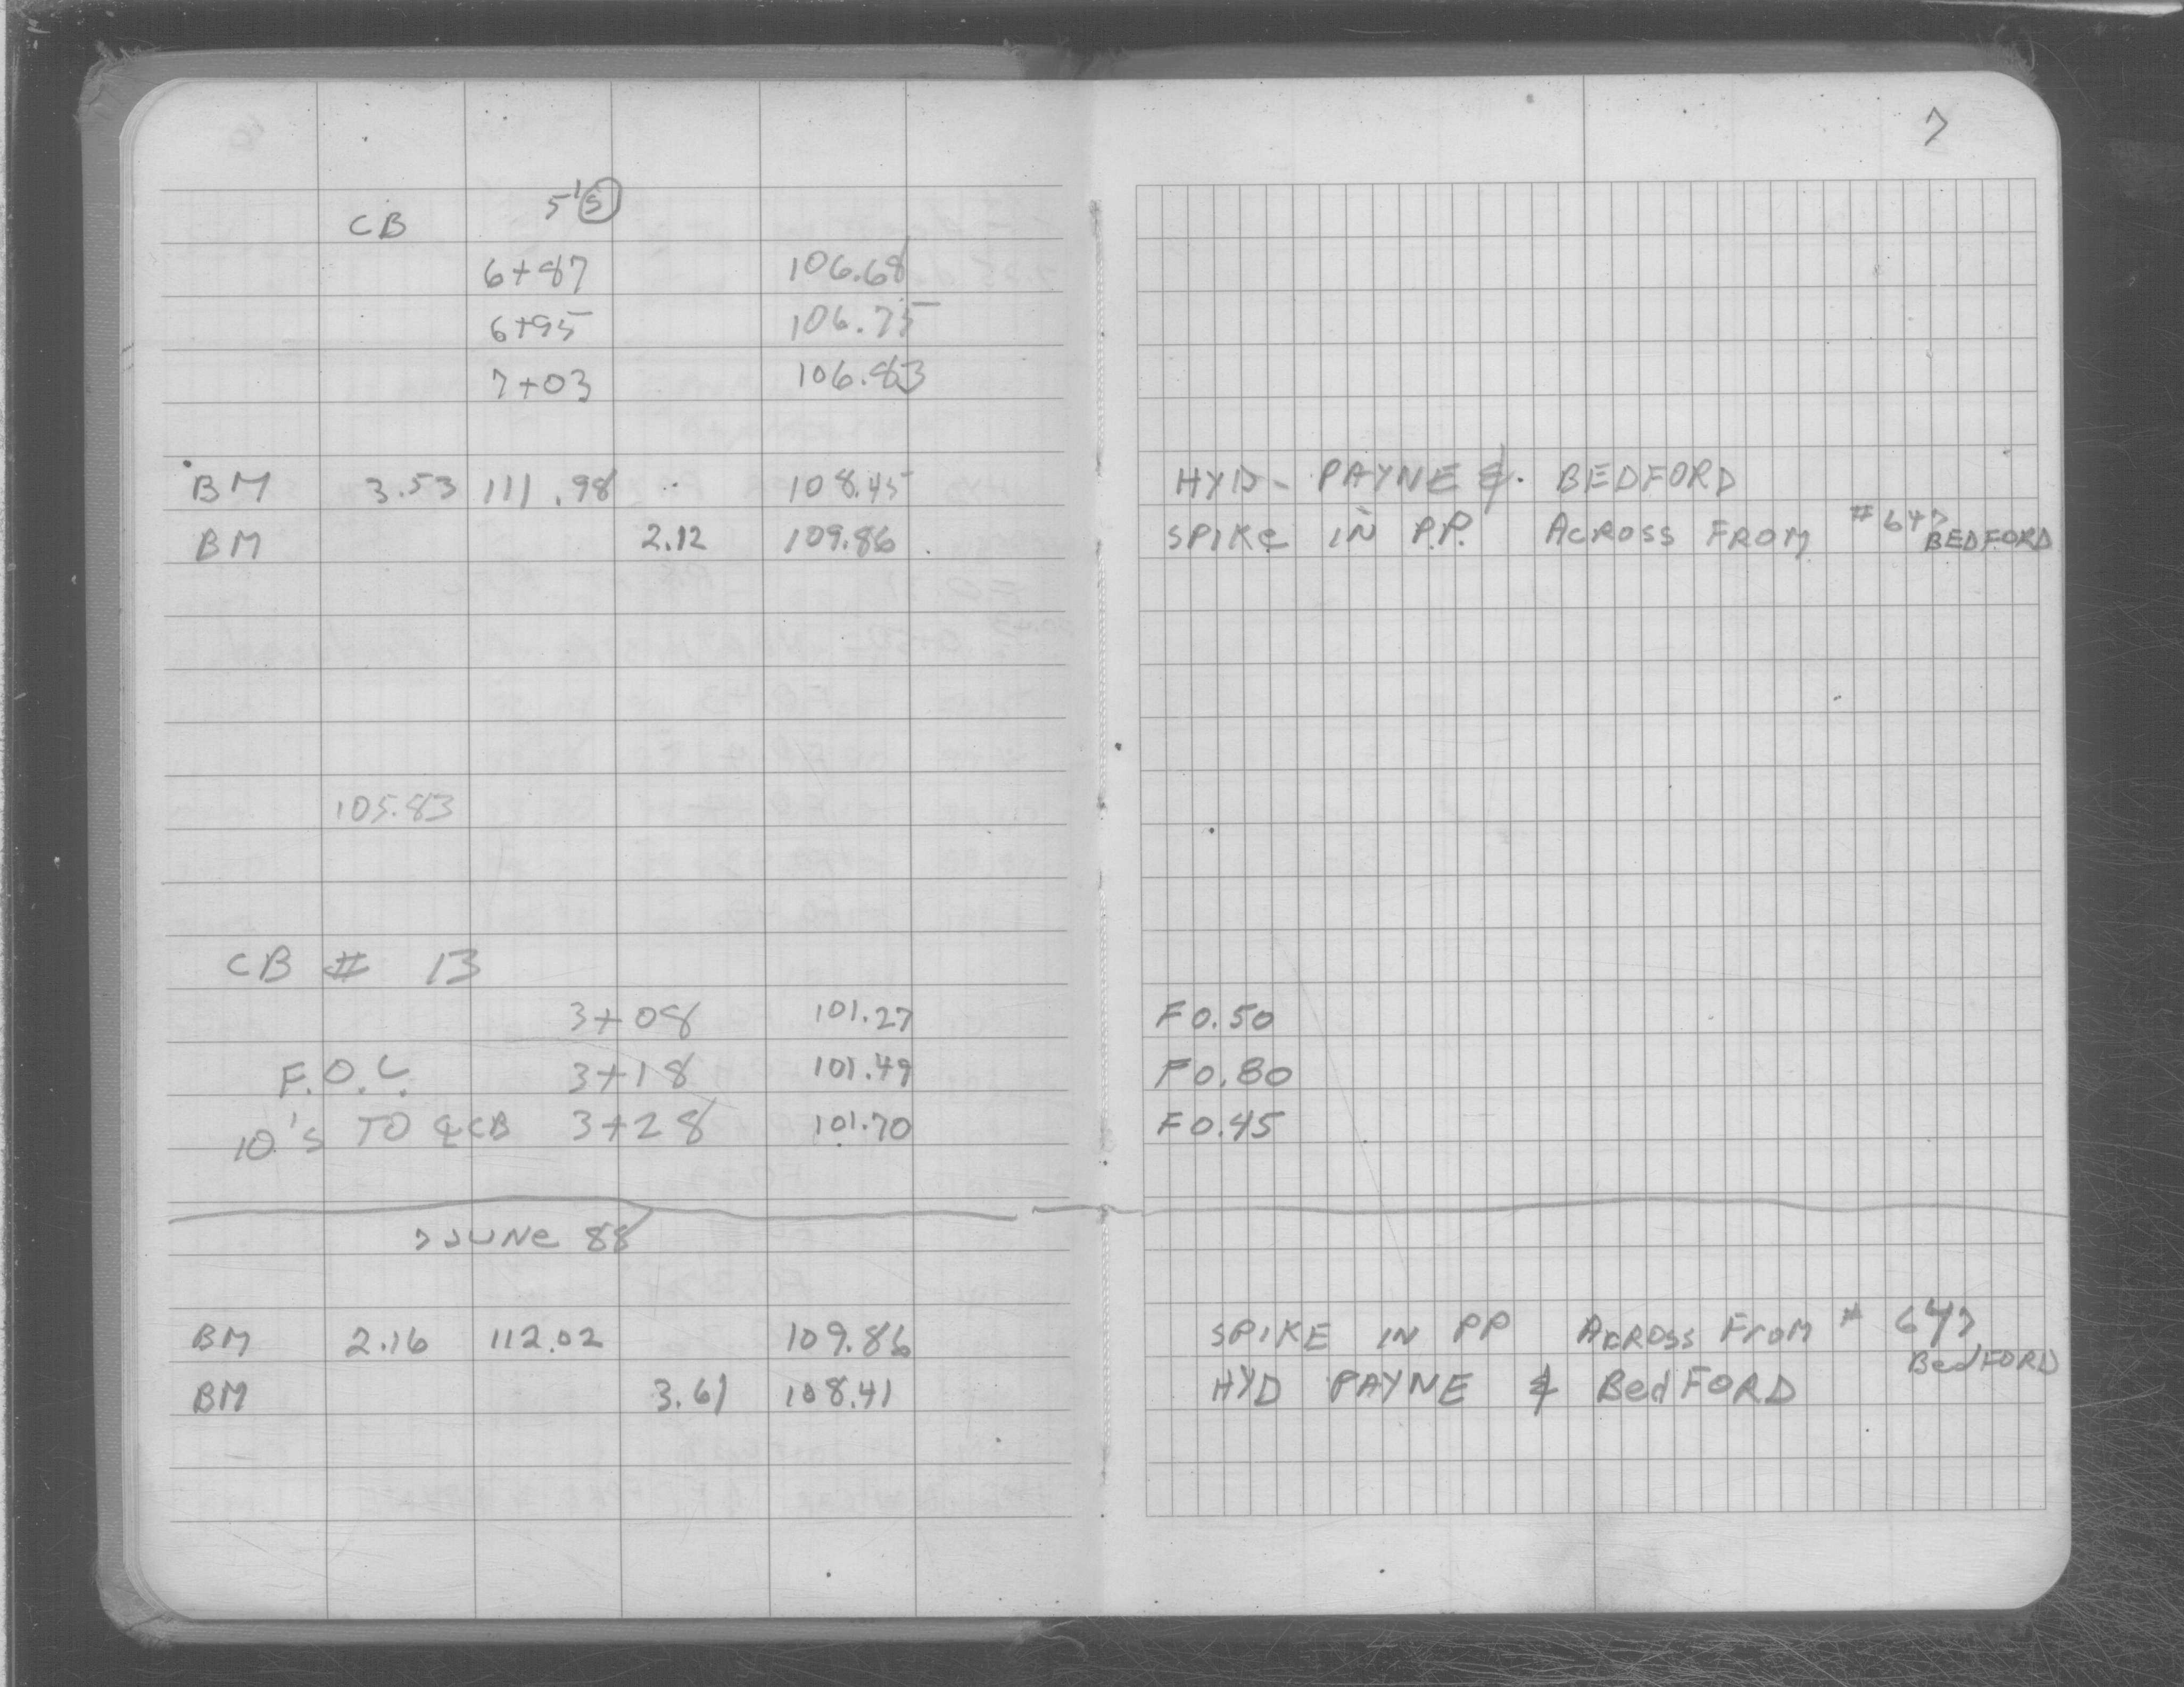 7
CB 5's
6+87 106.68
6+95 106.75
7+03 106.83
BM 3.53 111.98 108.45 HYD- PAYNE & BEDFORD
BM 2.12 109.86 SPIKE IN P.P. ACROSS FROM #647 BEDFORD
105.83
CB # 13
3+08 101.27 F0.50
F.O.C. 3+18 101.49 F0.80
10's TO ℄ CB 3+28 101.70 F0.45
7 JUNE 88
BM 2.16 112.02 109.86 SPIKE IN PP ACROSS FROM # 647 BedFORD
BM 3.61 108.41 HYD PAYNE & BedFORD